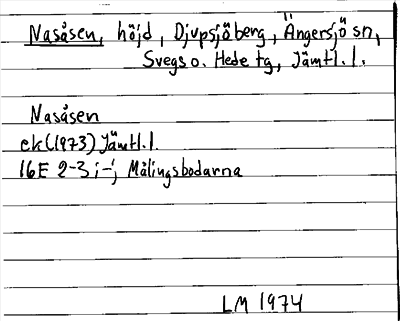 Nasåsen, höjd, Djupsjöberg, Ängersjö sn,
Svegs o. Hede tg, Jämtl.l.
Nasåsen
ek (1973) Jämtl.l.
16E 2-3 i-j Målingsbodarna
LM 1974